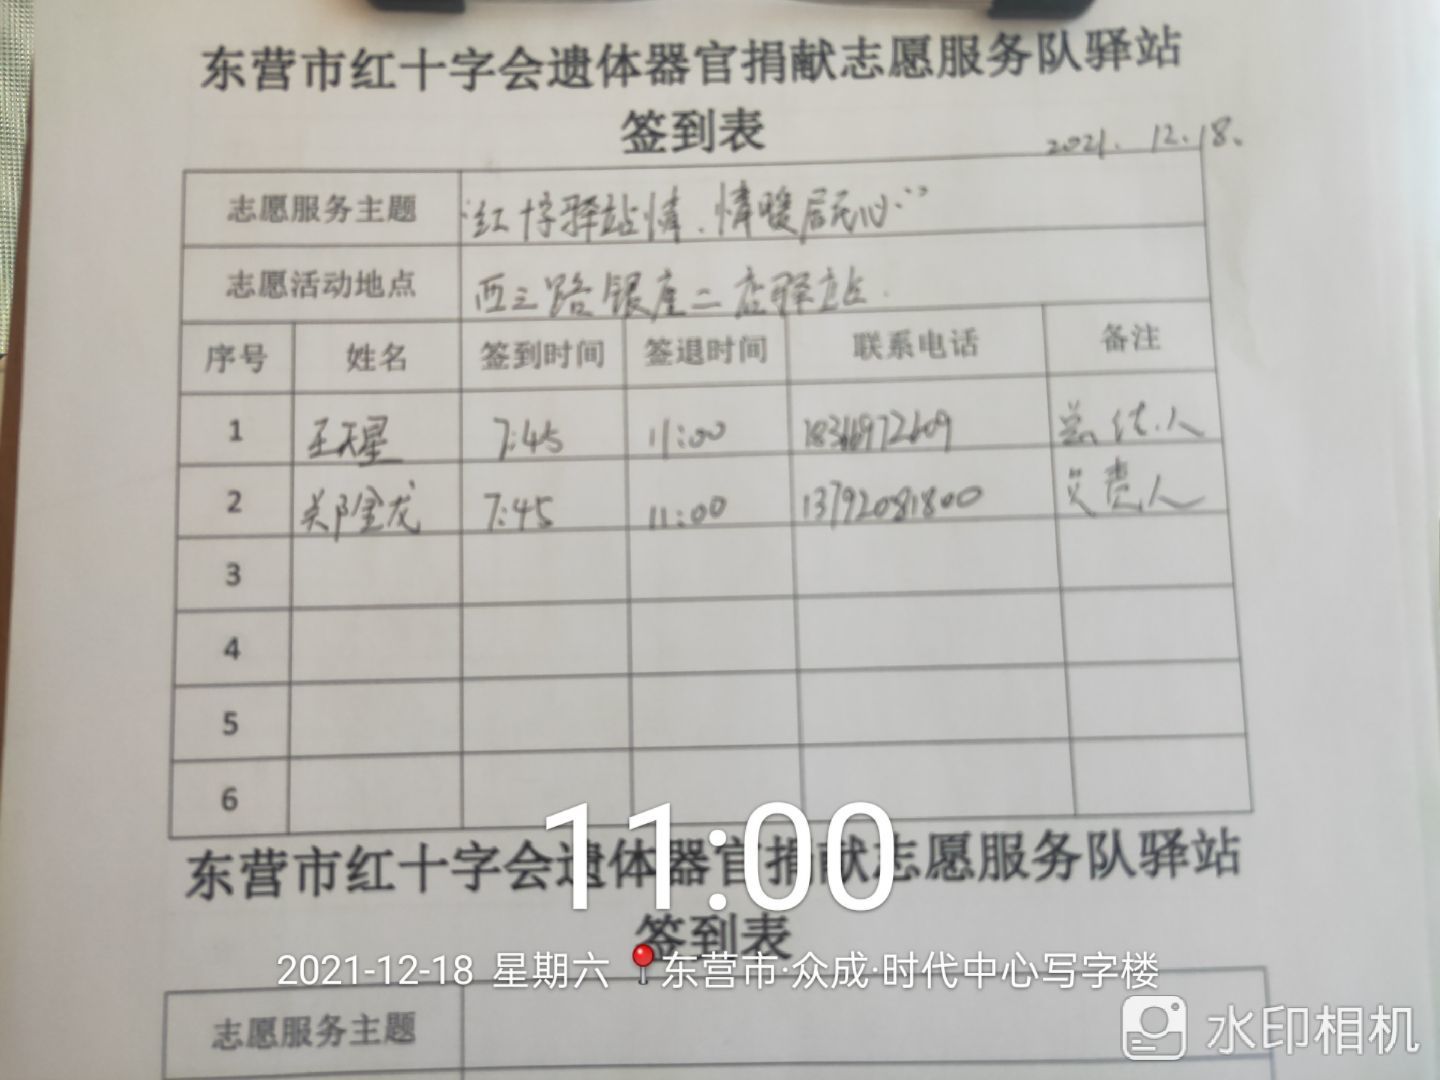 东营市红十字会遗体器官捐献志愿服务队驿站
签到表
2021.12.18.
志愿服务主题 "红十字驿站情.情暖居民心"
志愿活动地点 西三路银座二店驿站.
序号 姓名 签到时间 签退时间 联系电话 备注
1 王天星 7:45 11:00 总结人
2 郑金龙 7:45 11:00 13792081800 负责人
3
4
5
6
11:00
东营市红十字会遗体器官捐献志愿服务队驿站
签到表
2021-12-18 星期六 东营市·众成·时代中心写字楼
志愿服务主题
水印相机